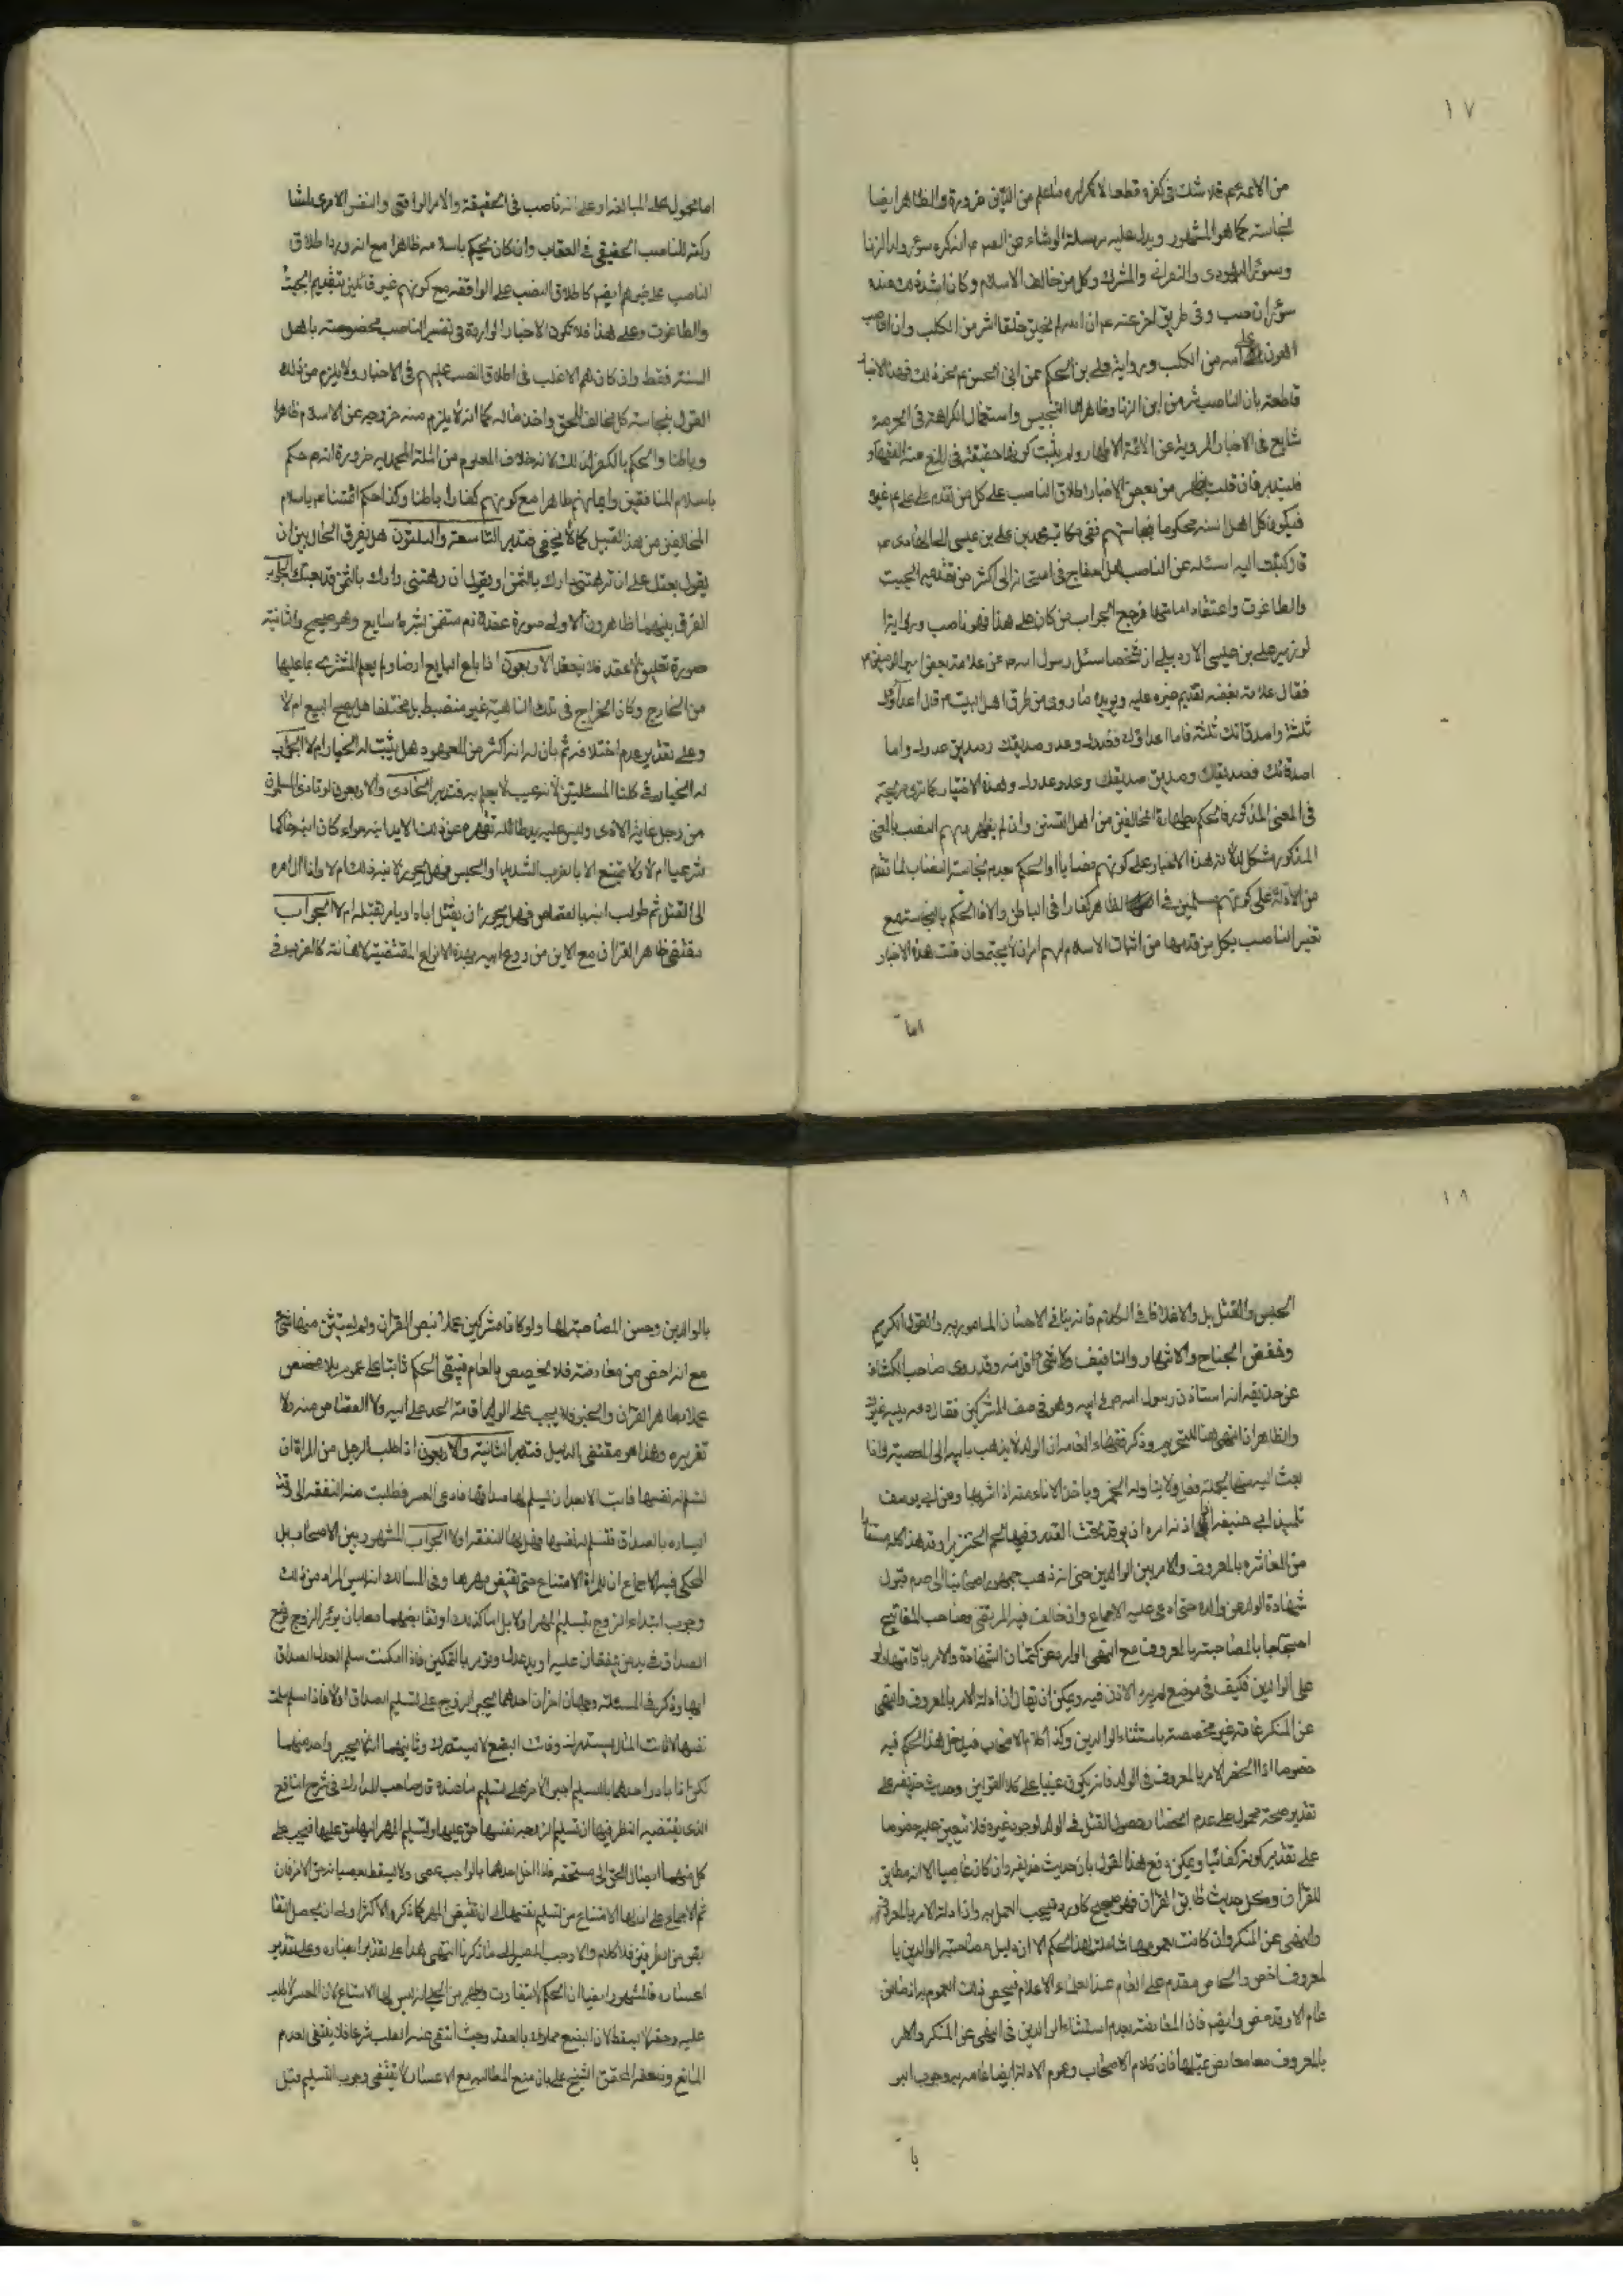 ١٧
من الائمة عم فلا شك في كفره قطعا لانكاره ما علم من الدين ضرورة والظاهر ايضا
نجاسته كما هو المشهور ويدل عليه مرسلة الوشاء عن الصم عم انه كره سؤر ولد الزنا
وسؤر اليهودي والنصراني والمشرك وكل من خالف الاسلام وكان اشد ذلك عنده
سؤر الناصب وفي طريق اخر عنه عم ان الله لم يخلق خلقا اشر من الكلب وان الناصب
اهون على الله من الكلب ورواية علي بن الحكم عمن ابي الحسن عم نحو ذلك فهذه الاخبار
قاطعة بان الناصب شر من ابن الزنا وظاهرها التنجيس واستعمال الكراهة في الحرمة
شايع في الاخبار المروية عن الائمة الاطهار ولم يثبت كونها حقيقة في المنع عنه الفقهاء
فليتدبر فان قلت يظهر من بعض الاخبار اطلاق الناصب على كل من تقدم على علي عم غيره
فيكون كل اهل السنة محكوما بنجاستهم ففي مكاتبة محمد بن علي بن عيسى الى الهادي عم
قال كتبت اليه اسئله عن الناصب هل احتاج في امتحانه الى اكثر من تقديمه الجبت
والطاغوت واعتقاد امامتهما فرجع الجواب من كان على هذا فهو ناصب ورواية
علي بن عيسى الاردبيلي ان شخصا سئل رسول الله صم عن علامة بغض امير المؤمنين عم
فقال علامة بغضه تقديم غيره عليه ويؤيده ما روي من طرق اهل البيت عم قال اعداؤك
ثلثة واصدقائك ثلثة فاما اعداؤك فعدوك وعدو صديقك وصديق عدوك واما
اصدقائك فصديقك وصديق صديقك وعدو عدوك وهذه الاخبار كما ترى صريحة
في المعنى المذكور فالحكم بطهارة المخالفين من اهل التسنن وان لم يظهر منهم النصب بالمعنى
المذكور مشكل لدلالة هذه الاخبار على كونهم نصابا والحكم بعدم نجاسة النصاب لما تقدم
من الادلة على كونهم مسلمين في الظاهر كفارا في الباطن والا فالحكم بالنجاسة مع
تفسير الناصب بكل من قدمهما من اثبات الاسلام لهم امران لا يجتمعان قلت هذه الاخبار
اما
اما محمول على المبالغة او على انه ناصب في الحقيقة والامر الواقعي والنفس الامري
للناصب الحقيقي في العقاب وان كان يحكم باسلامه ظاهرا مع انه ورد اطلاق
الناصب على غيرهم ايضا كاطلاق النصب على الواقفة مع كونهم غير قائلين بتقديم الجبت
والطاغوت وعلى هذا فلا تكون الاخبار الواردة في تفسير الناصب مخصوصة باهل
السنة فقط وان كان هم الاغلب في اطلاق النصب عليهم في الاخبار ولا يلزم من ذلك
القول بنجاسة كل مخالف للحق واخذ ماله كما انه لا يلزم منه خروجه عن الاسلام ظاهرا
وباطنا والحكم بالكفر لذلك لانه خلاف المعلوم من الملة المحمدية ضرورة انه صم حكم
باسلام المنافقين وايمانهم ظاهرا مع كونهم كفارا باطنا وكذا حكم ائمتنا عم باسلام
المخالفين من هذا القبيل كما لا يخفى فتدبر التاسعة والثلثون هل يفرق الحال بين ان
يقول بعتك على ان ترهنني دارك بالثمن او يقول ان رهنتني دارك بالثمن فقد بعتك الجواب
الفرق بينهما ظاهر فان الاولى صورة عقد لازم متضمن لشرط سايغ وهو صحيح والثانية
صورة تعليق لا عقد فلا ينعقد الاربعون اذا باع البايع ارضا ولم يعلم المشتري بما عليها
من الخارج وكان الخراج في تلك الناحية غير منضبط بل مختلفا هل يصح البيع ام لا
وعلى تقدير عدم اختلافه ثم بان له انه اكثر من المعهود هل يثبت له الخيار ام لا الجواب
له الخيار في كلتا المسئلتين لانه عيب لا يعلم به فتدبر الحادي والاربعون لو تاذى المسلمون
من رجل غاية الاذى وليس عليه يد طائلة تقهره عن ذلك الا يد ابنه سواء كان ابنه حاكما
شرعيا ام لا ولا يمتنع الا بالضرب الشديد او الحبس فهل يجوز لابنه ذلك ام لا واذا ال امره
الى القتل ثم طولب ابنه بالقصاص فهل يجوز ان يقتل اباه او يامر بقتله ام لا الجواب
مقتضى ظاهر القران منع الابن من ردع ابيه بهذه الانواع المقتضية لاهانته كالضرب و
١٨
الحبس والقتل بل والاغلاظ في الكلام فانه ينافي الاحسان المامور به والقول الكريم
وخفض الجناح والانتهار والتافيف ولا شيء اقل منه وقد روى صاحب الكشاف
عن حذيفة انه استاذن رسول الله صم في ابيه وهو في صف المشركين فقال دعه يليه غيرك
والظاهر ان النهي هنا للتحريم وذكر فقهاء العامة ان الولد لا يذهب بابيه الى المعصية واذا
بعث اليه منها ليحمله فعل ولا يناوله الخمر وياخذ الاناء منه اذا شربها وعن ابي يوسف
تلميذ ابي حنيفة انه اذا امره ان يوقد تحت القدر وفيها لحم الخنزير اوقد هذا كله مستفاد
من المعاشرة بالمعروف والامر ببر الوالدين حتى انه ذهب جمهور اصحابنا الى عدم قبول
شهادة الولد على والده حتى ادعي عليه الاجماع وان خالف فيه المرتضى وصاحب المفاتيح
احتجاجا بالمصاحبة بالمعروف مع النهي الوارد عن كتمان الشهادة والامر باقامتها ولو
على الوالدين فكيف في موضع لم يرد الاذن فيه ويمكن ان يقال ان ادلة الامر بالمعروف والنهي
عن المنكر عامة غير مخصصة باستثناء الوالدين وكذا كلام الاصحاب فيدخل هذا الحكم فيه
خصوصا اذا انحصر الامر بالمعروف في الولد فانه يكون عينيا على كلا القولين وحديث حذيفة على
تقدير صحته محمول على عدم انحصار حصول القتل في الولد لوجود غيره فلا يتعين عليه خصوصا
على تقدير كونه كفائيا ويمكن دفع هذا القول بان حديث حذيفة وان كان عاميا الا انه مطابق
للقران وكل حديث طابق القران فهو صحيح كما ورد فيجب العمل به واذا ادلة الامر بالمعروف
والنهي عن المنكر وان كانت بعمومها شاملة لهذا الحكم الا ان دليل مصاحبة الوالدين با
لمعروف اخص والخاص مقدم على العام عند العلماء الاعلام فيخص ذلك العموم به اذ ما من
عام الا وقد خص وايضا فان المعارضة بعدم استثناء الوالدين في النهي عن المنكر والامر
بالمعروف معا معارض بمثلها فان كلام الاصحاب وعموم الادلة ايضا عامة بوجوب البر
با
بالوالدين وحسن المصاحبة لهما ولو كانا مشركين عملا بنص القران ولم يستثن منها شيء
مع انه اخص من معارضته فلا تخصيص بالعام فيبقى الحكم ثابتا على عمومه بلا مخصص
عملا بظاهر القران والخبر فلا يجب على الولد اقامة الحد على ابيه ولا القصاص منه ولا
تعزيره وهذا هو مقتضى الدليل فتدبر الثانية والاربعون اذا طلب الرجل من المراة ان
تسلم له نفسها فابت الا بعد ان يسلم لها صداقها فادعى العسر فطلبت منه النفقة الى وقت
يساره بالصداق فتسلم له نفسها فهل لها النفقة ام لا الجواب المشهور بين الاصحاب بل
المحكي فيه الاجماع ان للمراة الامتناع حتى تقبض مهرها وفي المسالك انه ليس المراد من ذلك
وجوب ابتداء الزوج بتسليم المهر اولا بل اما كذلك او تقابضهما معا بان يؤمر الزوج بوضع
الصداق في يد من يتفقان عليه او يد عدل وتؤمر بالتمكين فاذا مكنت سلم العدل الصداق
اليها وذكر في المسئلة وجهان اخران احدهما يجبر الزوج على تسليم الصداق اولا فاذا سلم سلمت
نفسها لان فات المال يستدرك وفات البضع لا يستدرك وثانيهما انه لا يجبر واحد منهما
لكن اذا بادر احدهما بالتسليم اجبر الاخر على تسليم ما عنده قال صاحب المدارك في شرح النافع
الذي يقتضيه النظر فيها ان تسليم الزوجة نفسها حق عليها وتسليم المهر اليها حق عليه فيجب على
كل منهما ايصال الحق الى مستحقه فاذا اخل احدهما بالواجب عصى ولا يسقط بعصيانه حق الاخر فان
تم الاجماع على ان لها الامتناع من تسليم نفسها الى ان تقبض المهر كما ذكره الاكثر او الى ان يحصل التقا
بض من الطرفين فلا كلام والا وجب المصير الى ما ذكرنا انتهى هذا على تقدير يساره وعلى تقدير
اعساره فالمشهور ايضا ان الحكم لا يتفاوت ويظهر من الحلي انه ليس لها الامتناع لان المعسر لا طلب
عليه وحقه لا يسقط لان البضع مملوك له بالعقد وحيث انتفى عنه الطلب شرعا فلا يقتضي لعدم
المانع وضعفه المحقق الشيخ علي بان منع المطالبة مع الاعسار لا يقتضي وجوب التسليم قبل